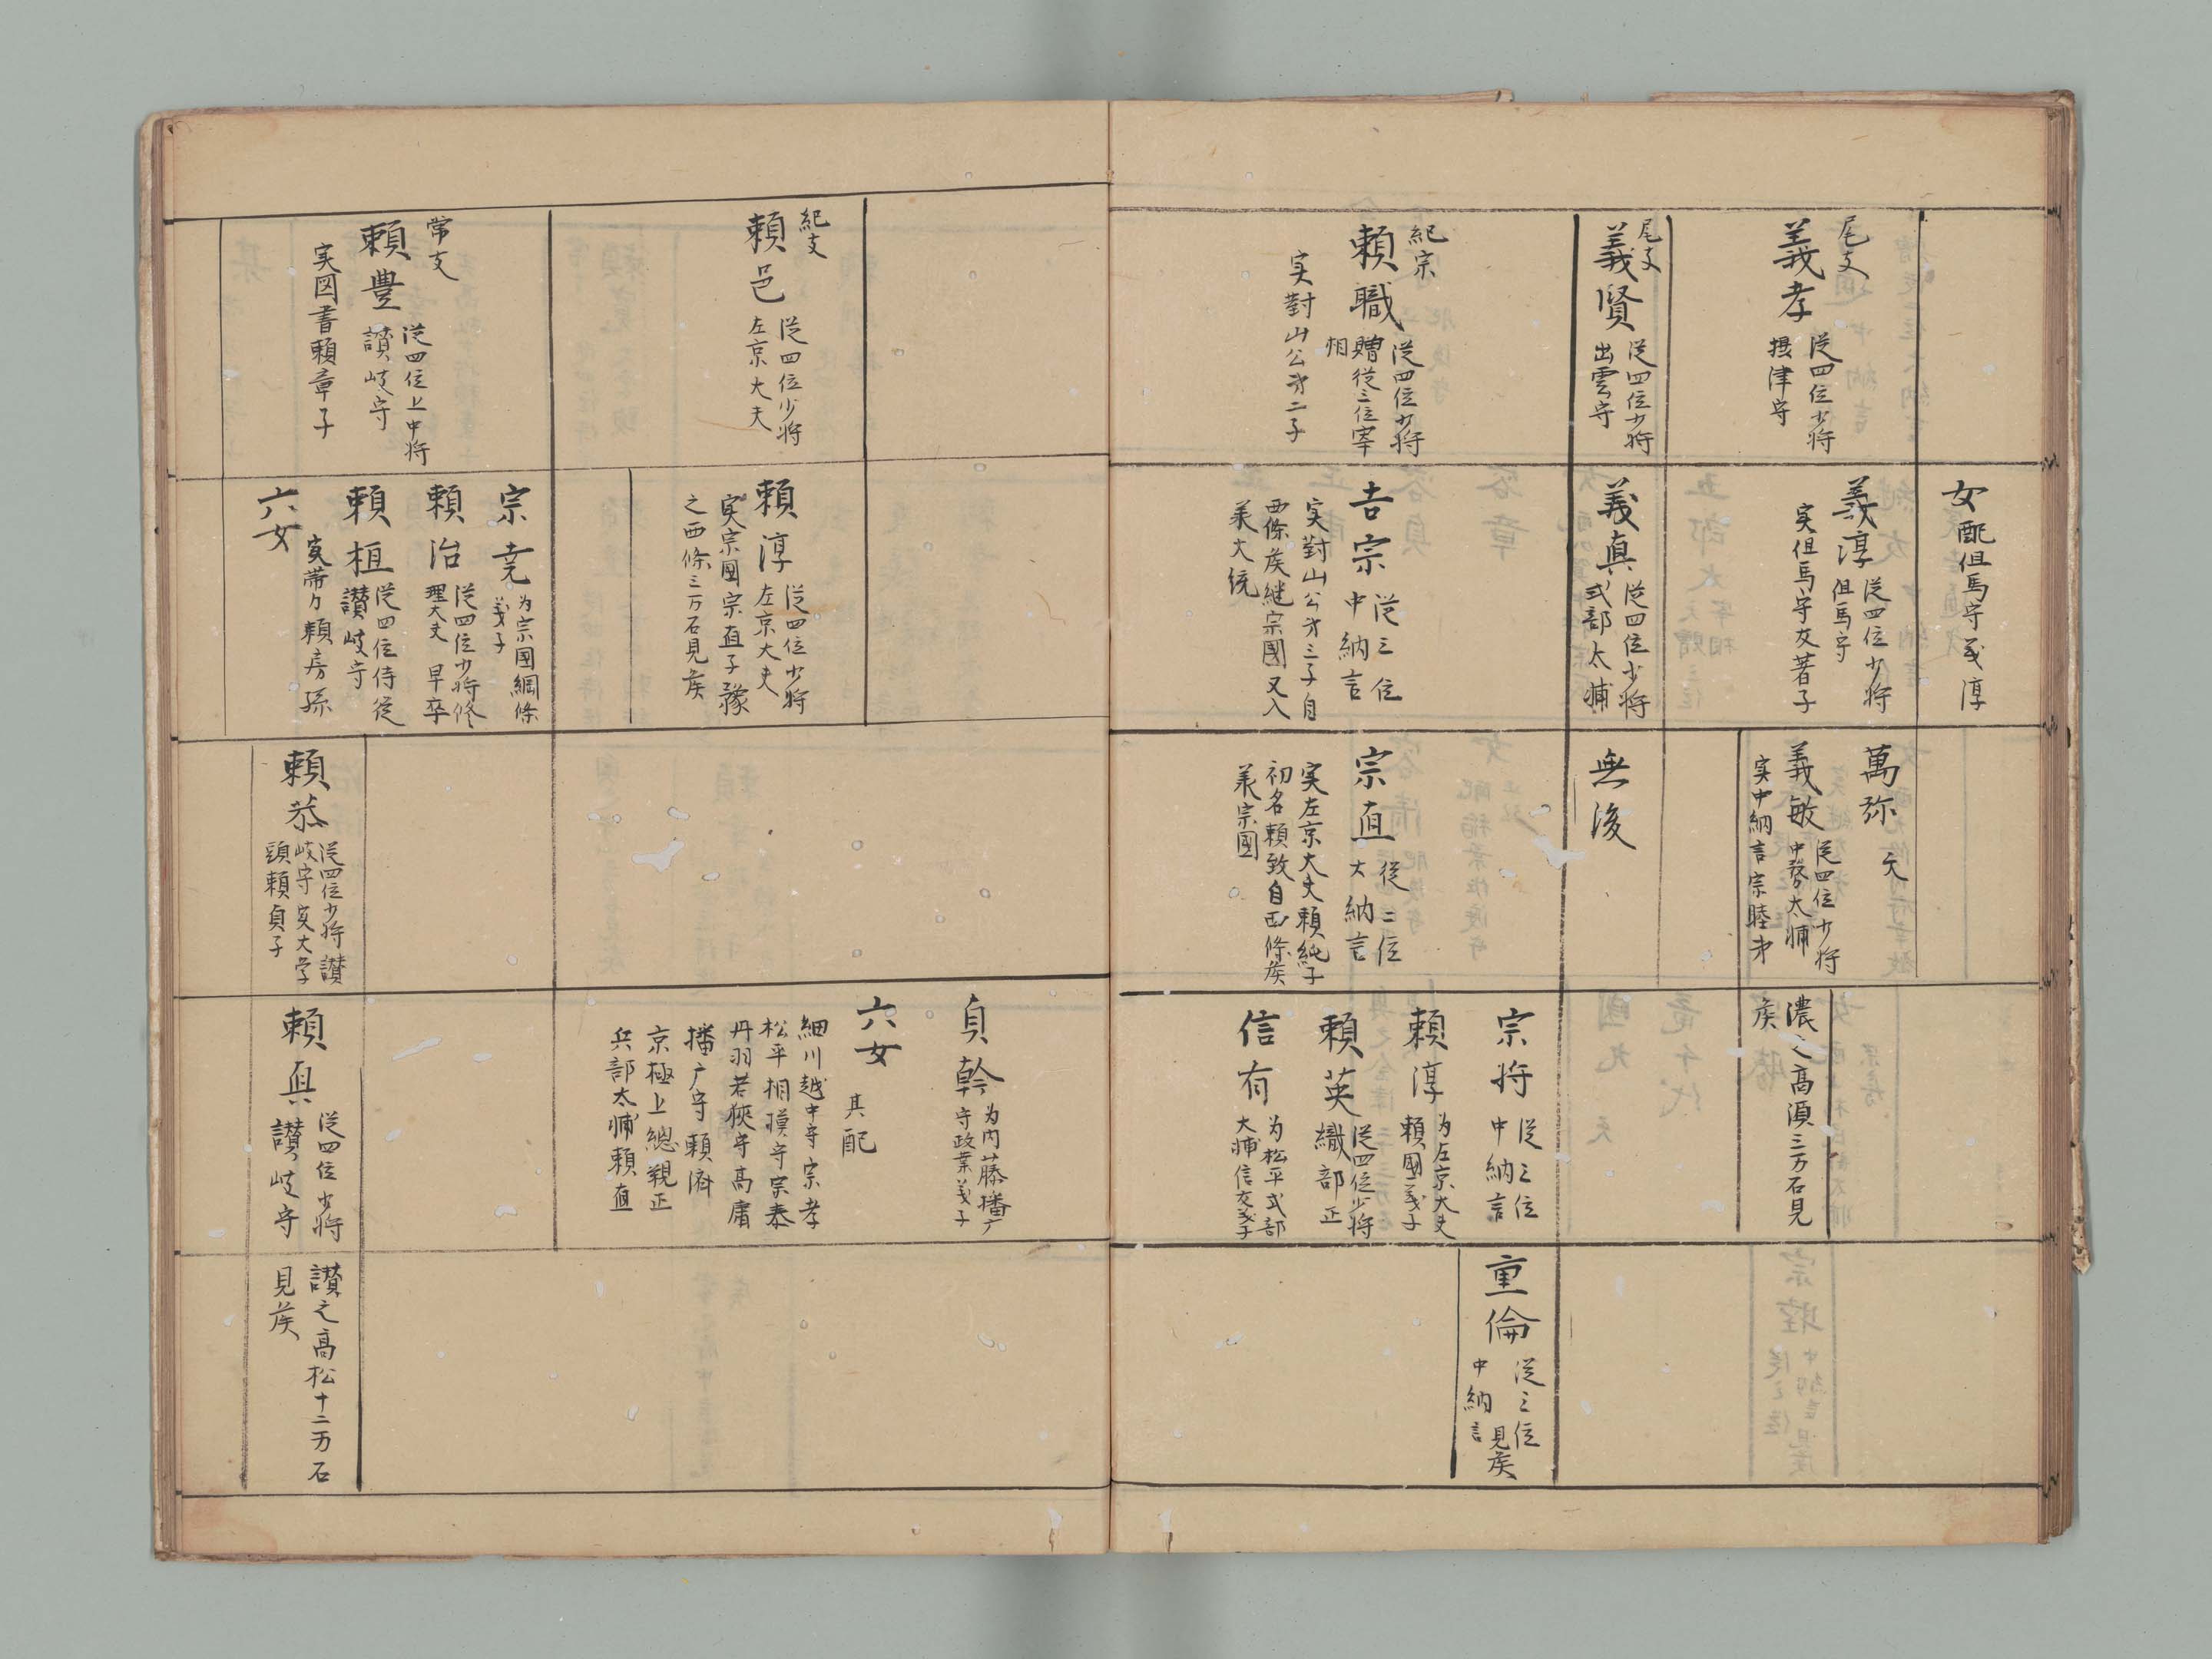 女配但馬守義淳
尾支
義孝
従四位少将
摂津守
義淳
従四位少将
但馬守
実但馬守友著子
萬弥
夭
義敏
従四位少将
中務太輔
実中納言宗睦弟
濃之高須三万石見
侯
尾支
義賢
従四位少将
出雲守
義真
従四位少将
式部太輔
無後
紀宗
頼職
従四位少将
贈従三位宰
相
実對山公才二子
吉宗
従三位
中納言
実對山公才三子自
西條侯継宗國又入
承大統
宗直
従二位
大納言
実左京大夫頼純子
初名頼致自西條侯
承宗國
宗将
従三位
中納言
頼淳
为左京大夫
頼國義子
頼英
従四位少将
織部正
信有
为松平式部
大輔信友義子
重倫
従三位
中納言
見侯
紀支
頼邑
従四位少将
左京大夫
頼淳
従四位少将
左京大夫
実宗國宗直子豫
之西條三万石見侯
貞幹
为内藤播广
守政業義子
六女
其配
細川越中守宗孝
松平相摸守宗泰
丹羽若狹守高庸
播广守頼済
京極上總親正
兵部太輔頼直
常支
頼豊
従四位上中将
讃岐守
実図書頼章子
宗尭
为宗國綱條
義子
頼治
従四位少将修
理大夫 早卒
頼桓
従四位侍従
讃岐守
実帯刀頼房孫
六女
頼恭
従四位少将讃
岐守実大学
頭頼貞子
頼真
従四位少将
讃岐守
讃之高松十二万石
見侯